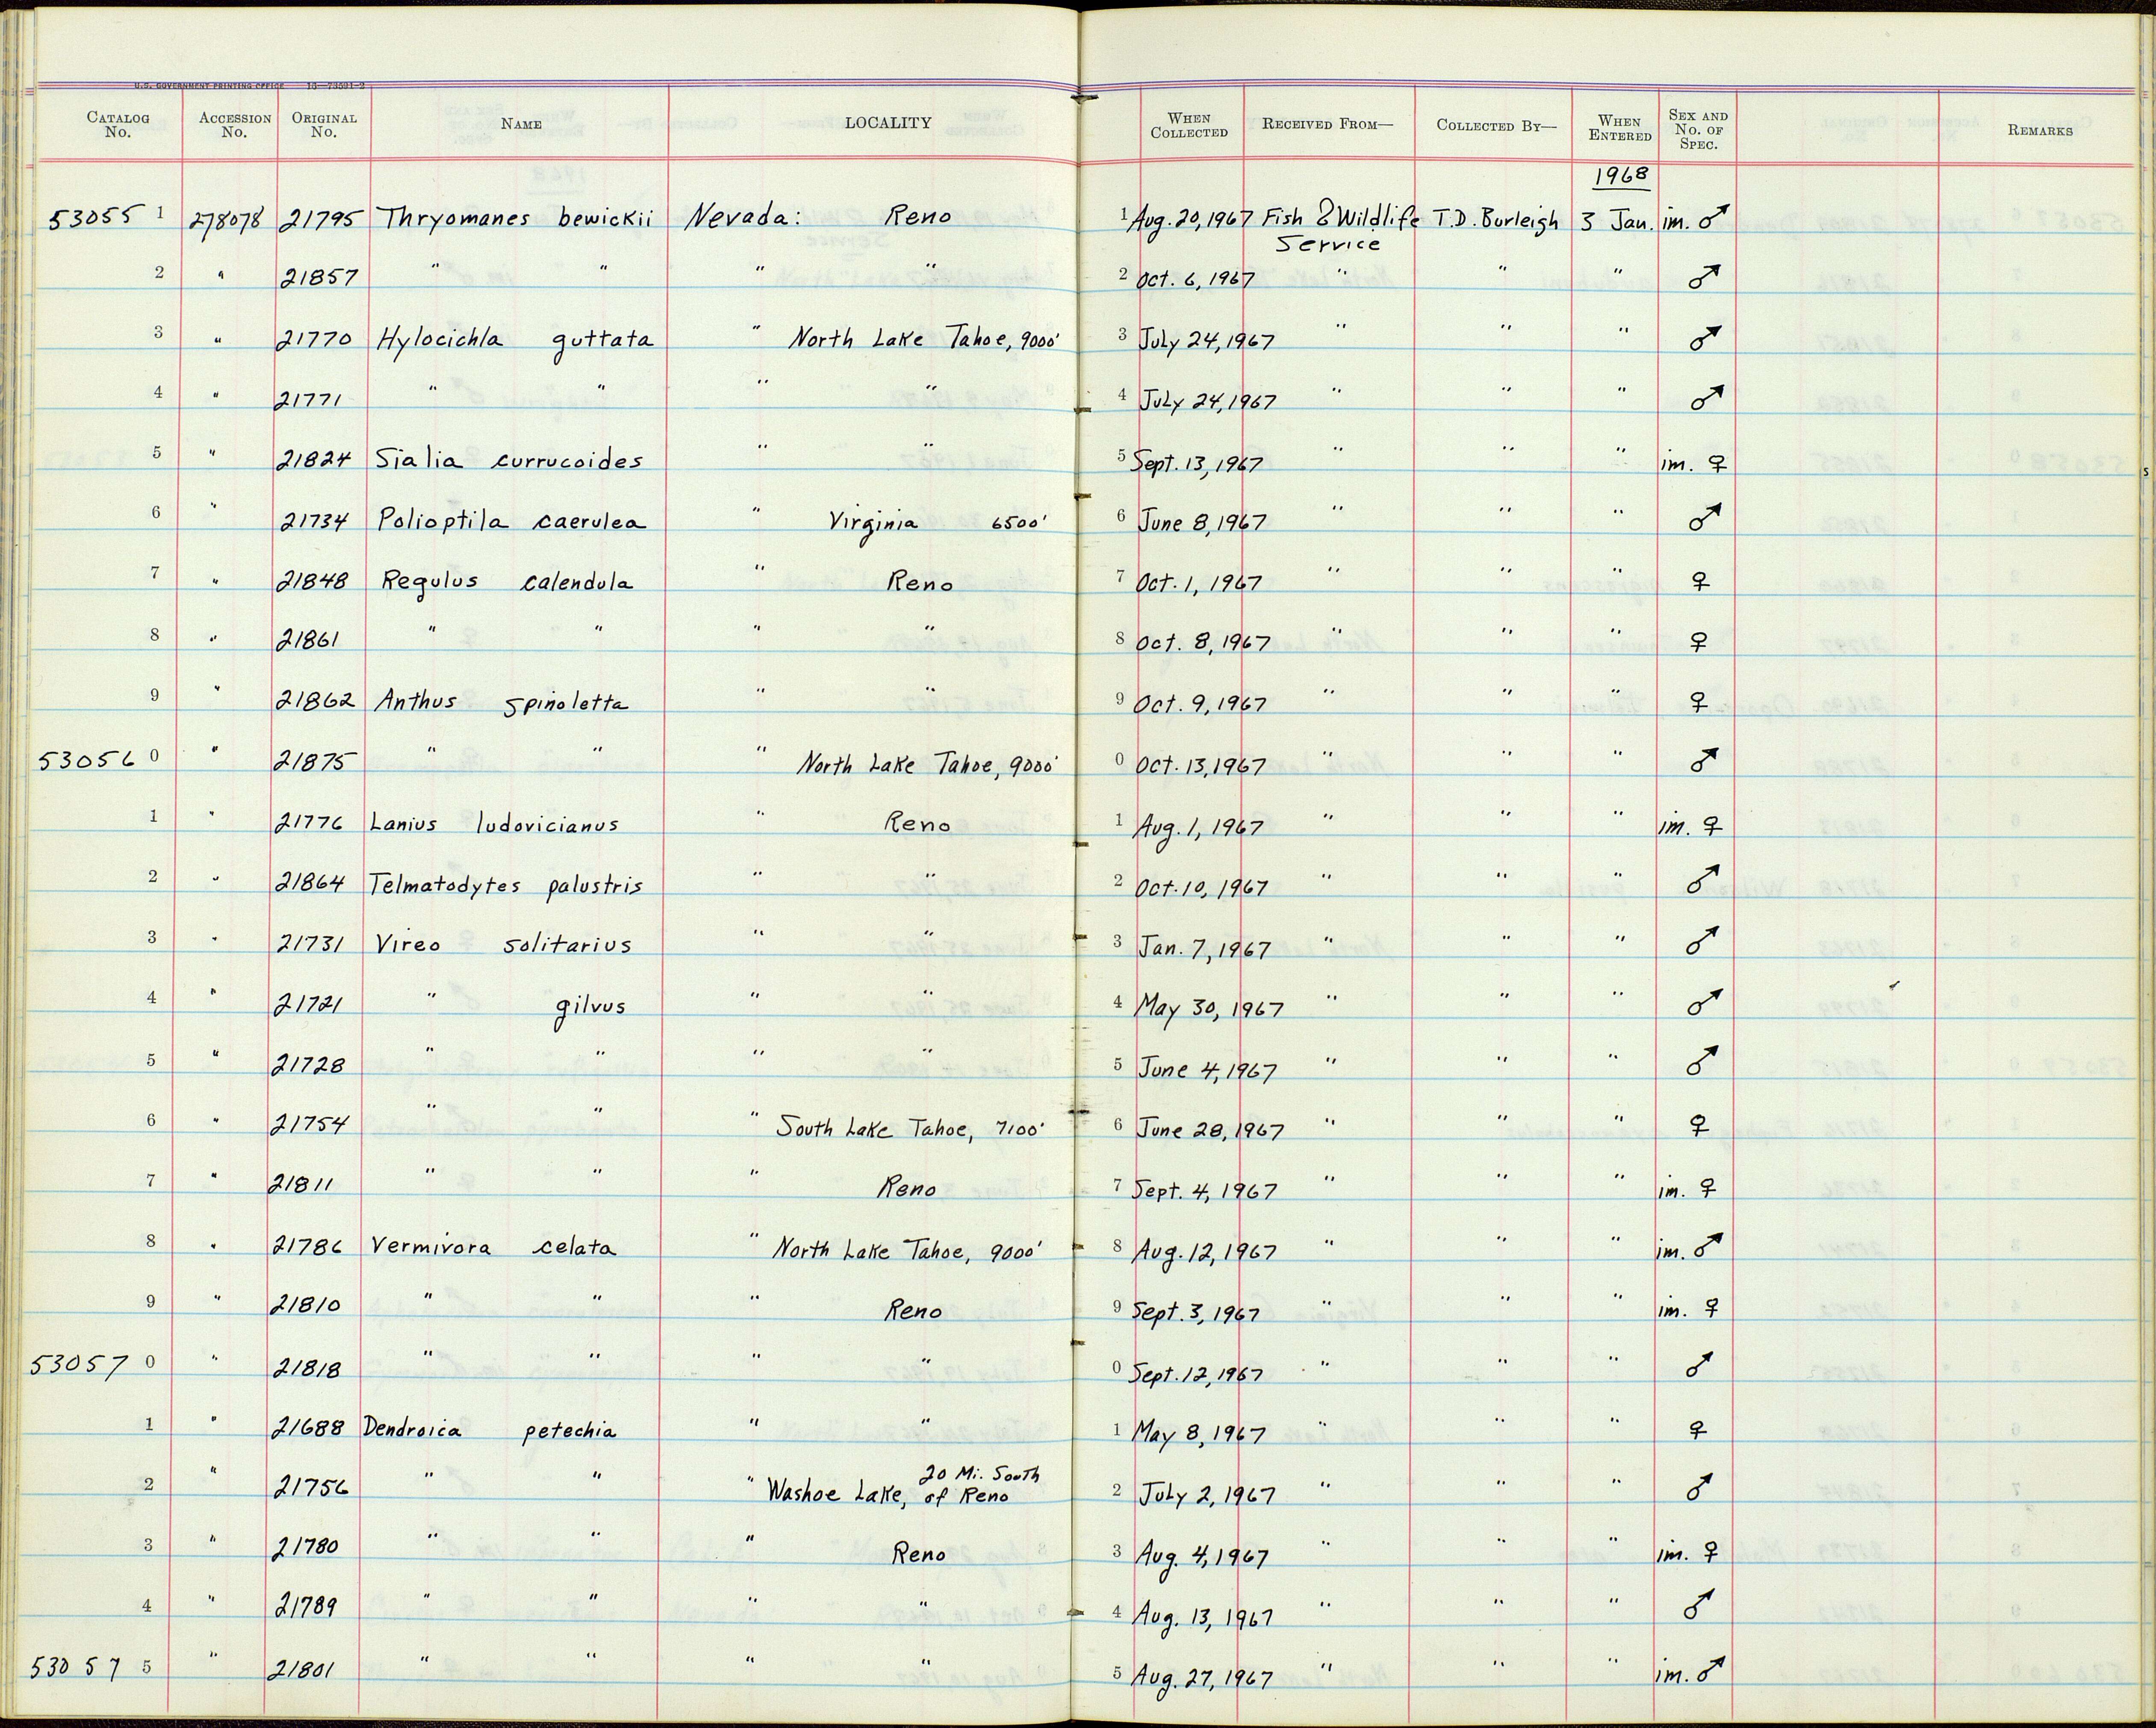 U.S. GOVERNMENT PRINTING OFFICE 16—73591-2
CATALOG No. ACCESSION No. ORIGINAL No. NAME LOCALITY WHEN COLLECTED RECEIVED FROM— COLLECTED BY— WHEN ENTERED SEX AND No. OF SPEC. REMARKS
1968
53055 1 278078 21795 Thryomanes bewickii Nevada: Reno 1 Aug. 20, 1967 Fish & Wildlife Service T.D. Burleigh 3 Jan. im. ♂
2 " 21857 " " " " 2 Oct. 6, 1967 " " " ♂
3 " 21770 Hylocichla guttata " North Lake Tahoe, 9000' 3 July 24, 1967 " " " ♂
4 " 21771 " " " " 4 July 24, 1967 " " " ♂
5 " 21824 Sialia currucoides " " 5 Sept. 13, 1967 " " " im. ♀
6 " 21734 Polioptila caerulea " Virginia 6500' 6 June 8, 1967 " " " ♂
7 " 21848 Regulus calendula " Reno 7 Oct. 1, 1967 " " " ♀
8 " 21861 " " " " 8 Oct. 8, 1967 " " " ♀
9 " 21862 Anthus spinoletta " " 9 Oct. 9, 1967 " " " ♀
53056 0 " 21875 " " " North Lake Tahoe, 9000' 0 Oct. 13, 1967 " " " ♂
1 " 21776 Lanius ludovicianus " Reno 1 Aug. 1, 1967 " " " im. ♀
2 " 21864 Telmatodytes palustris " " 2 Oct. 10, 1967 " " " ♂
3 " 21731 Vireo solitarius " " 3 Jan. 7, 1967 " " " ♂
4 " 21721 " gilvus " " 4 May 30, 1967 " " " ♂
5 " 21728 " " " " 5 June 4, 1967 " " " ♂
6 " 21754 " " " South Lake Tahoe, 7100' 6 June 28, 1967 " " " ♀
7 " 21811 " " " Reno 7 Sept. 4, 1967 " " " im. ♀
8 " 21786 Vermivora celata " North Lake Tahoe, 9000' 8 Aug. 12, 1967 " " " im. ♂
9 " 21810 " " " Reno 9 Sept. 3, 1967 " " " im. ♀
53057 0 " 21818 " " " " 0 Sept. 12, 1967 " " " ♂
1 " 21688 Dendroica petechia " " 1 May 8, 1967 " " " ♀
2 " 21756 " " " Washoe Lake, 20 Mi. South of Reno 2 July 2, 1967 " " " ♂
3 " 21780 " " " Reno 3 Aug. 4, 1967 " " " im. ♀
4 " 21789 " " " " 4 Aug. 13, 1967 " " " ♂
53057 5 " 21801 " " " " 5 Aug. 27, 1967 " " " im. ♂